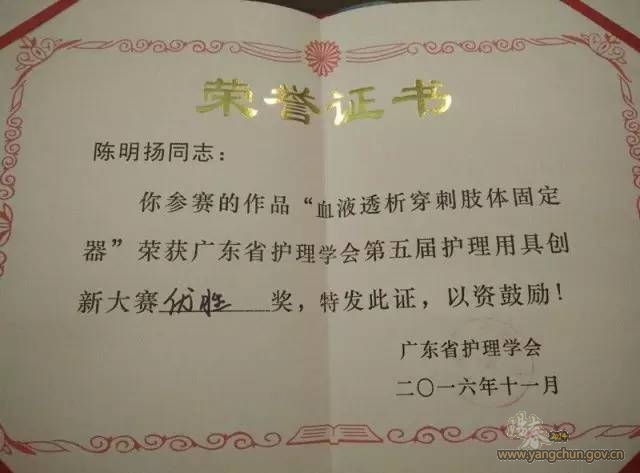 荣誉证书
陈明扬同志：
你参赛的作品“血液透析穿刺肢体固定
器”荣获广东省护理学会第五届护理用具创
新大赛优胜奖，特发此证，以资鼓励！
广东省护理学会
二〇一六年十一月
www.yangchun.gov.cn